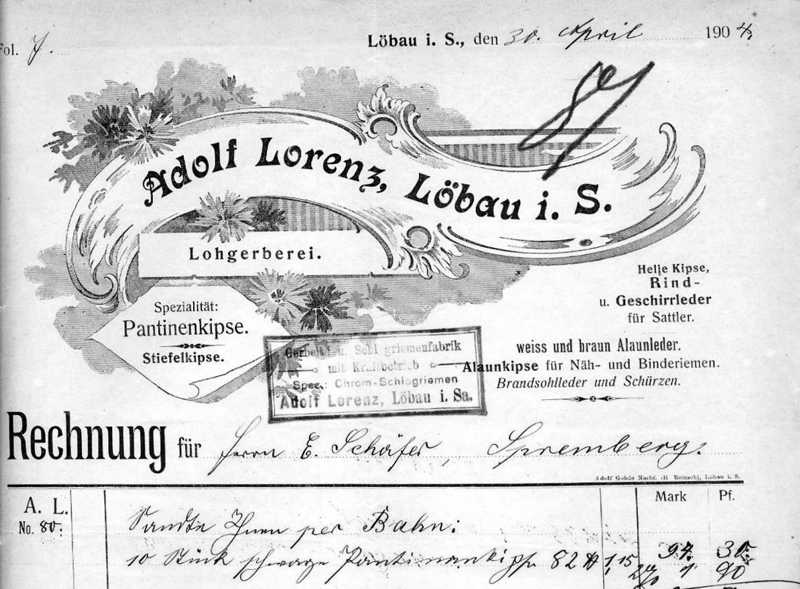 Fol. 7. Löbau i. S., den 30. April 1904
Adolf Lorenz, Löbau i. S.
Lohgerberei.
Spezialität:
Pantinenkipse.
Stiefelkipse.
Helle Kipse,
Rind-
u. Geschirrleder
für Sattler.
weiss und braun Alaunleder.
Alaunkipse für Näh- und Binderiemen.
Brandsohlleder und Schürzen.
Gerberei u. Schlagriemenfabrik
mit Kraftbetrieb
Spec.: Chrom-Schlagriemen
Adolf Lorenz, Löbau i. Sa.
Rechnung für Herrn E. Schäfer, Spremberg.
Löbau i. S.
A. L. Mark Pf.
No. 80. Sandte Ihnen per Bahn:
10 Stück schwarze Pantinenkipse 82 1,15 94. 30.
2% 1 90